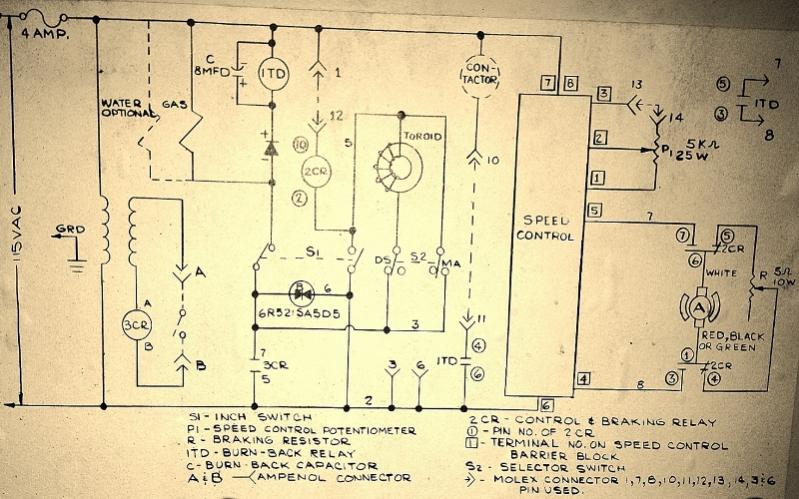 4 AMP.
115VAC
C
8MFD
1TD
1
12
CON-
TACTOR
7
8
3
13
14
2
P1
5KΩ
25W
1
5
7
1TD
3
8
WATER
OPTIONAL
GAS
10
2CR
2
5
TOROID
10
SPEED
CONTROL
5
7
7
5
2CR
6
WHITE
R
5Ω
10W
A
RED, BLACK
OR GREEN
1
2CR
3
4
GRD
A
A
3CR
B
B
S1
DS
S2
MA
6
6RS21SA5D5
3
11
7
3CR
5
3
6
1TD
4
6
4
8
2
6
S1-INCH SWITCH
P1-SPEED CONTROL POTENTIOMETER
R - BRAKING RESISTOR
1TD-BURN-BACK RELAY
C-BURN-BACK CAPACITOR
A & B ─< AMPENOL CONNECTOR
2CR - CONTROL & BRAKING RELAY
①-PIN NO. OF 2CR
1-TERMINAL NO. ON SPEED CONTROL
BARRIER BLOCK
S2 - SELECTOR SWITCH
- MOLEX CONNECTOR 1,7,8,10,11,12,13,14,3&6
PIN USED.